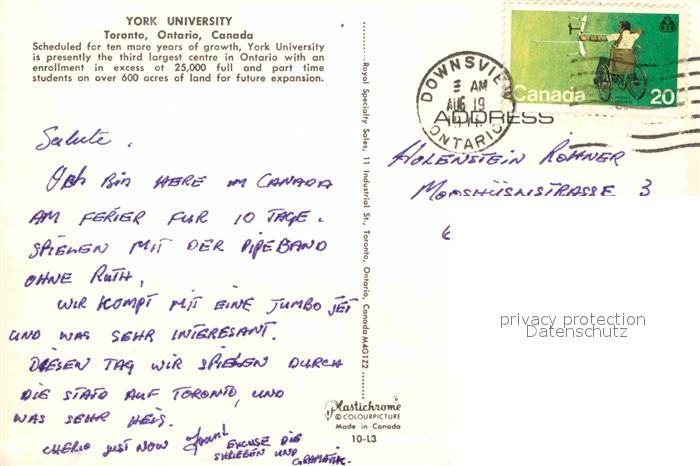 YORK UNIVERSITY
Toronto, Ontario, Canada
Scheduled for ten more years of growth, York University
is presently the third largest centre in Ontario with an
enrollment in excess of 25,000 full and part time
students on over 600 acres of land for future expansion.
Salute,
Ich bin HERE IN CANADA
AM FERIER FUR 10 TAGE.
SPIELEN MIT DER PIPEBAND
OHNE RUTH,
WIR KOMPT MIT EINE JUMBO JET
UND WAS SEHR INTERESANT.
DIESEN TAG WIR SPIELEN DURCH
DIE STATD AUF TORONTO, UND
WAS SEHR HEIS.
CHERIO JUST NOW Frank EXCUSE DIE
SHRIEBEN UND
GRAMATIK.
Royal Specialty Sales, 11 Industrial St., Toronto, Ontario, Canada M4G1Z2
Plastichrome
© COLOURPICTURE
Made in Canada
10-L3
DOWNSVIEW
AM
AUG 19
ONTARIO
Canada 20
ADDRESS
HOLENSTEIN ROHNER
MOOSHÜSNISTRASSE 3
privacy protection
Datenschutz